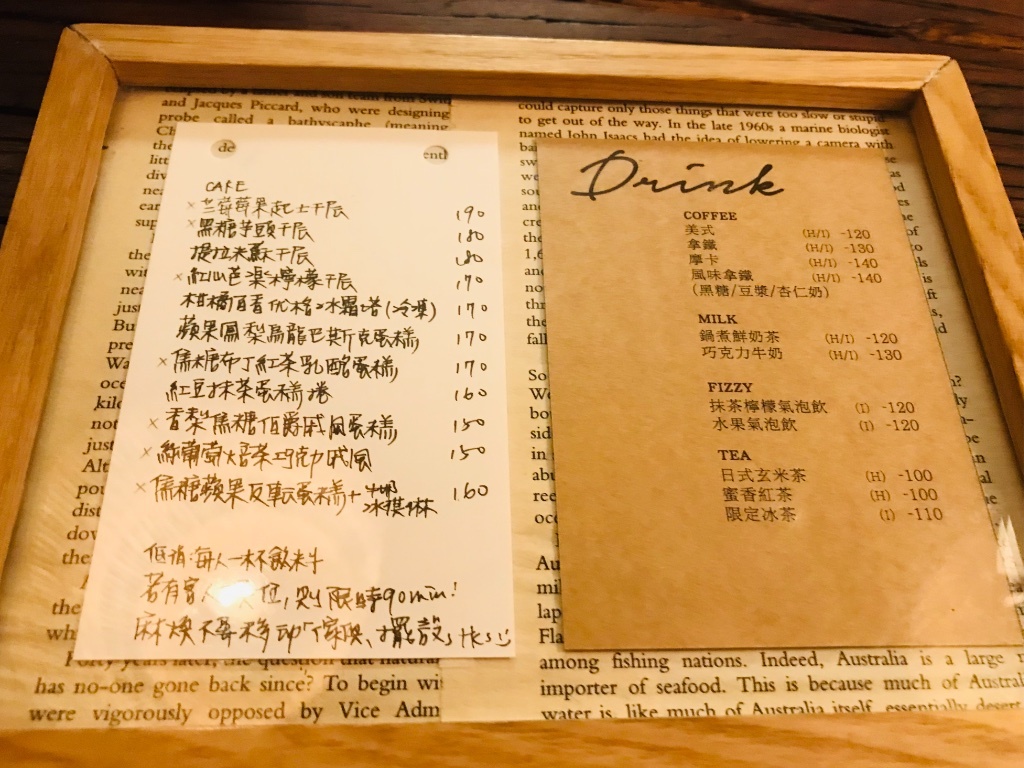 and Jacques Piccard, who were designing
probe called a bathyscaphe (meaning
de
entl
CAKE
黑糖芋頭千层 180
提拉米蘇千层 180
×紅心芭樂檸檬千层 170
柑橘百香优格冰霜塔(冷凍) 170
蘋果鳳梨烏龍巴斯克蛋糕 170
×焦糖布丁紅茶乳酪蛋糕 170
紅豆抹茶蛋糕捲 160
×香梨焦糖伯爵戚風蛋糕 150
×葡萄焙茶巧克力戚風 150
×焦糖蘋果反転蛋糕+牛奶冰淇淋 160
低消:每人一杯飲料
若有客人 位,則限時90min!
麻煩不要移動傢俱、擺設,tks
Forty years later, the question that natural
has no-one gone back since? To begin wi
were vigorously opposed by Vice Adm
could capture only those things that were too slow or stupid
to get out of the way. In the late 1960s a marine biologist
named John Isaacs had the idea of lowering a camera with
Drink
COFFEE
美式 (H/I) -120
拿鐵 (H/I) -130
摩卡 (H/I) -140
風味拿鐵 (H/I) -140
(黑糖/豆漿/杏仁奶)
MILK
鍋煮鮮奶茶 (H/I) -120
巧克力牛奶 (H/I) -130
FIZZY
抹茶檸檬氣泡飲 (I) -120
水果氣泡飲 (I) -120
TEA
日式玄米茶 (H) -100
蜜香紅茶 (H) -100
限定冰茶 (I) -110
among fishing nations. Indeed, Australia is a large
importer of seafood. This is because much of Austral
water is, like much of Australia itself, essentially desert